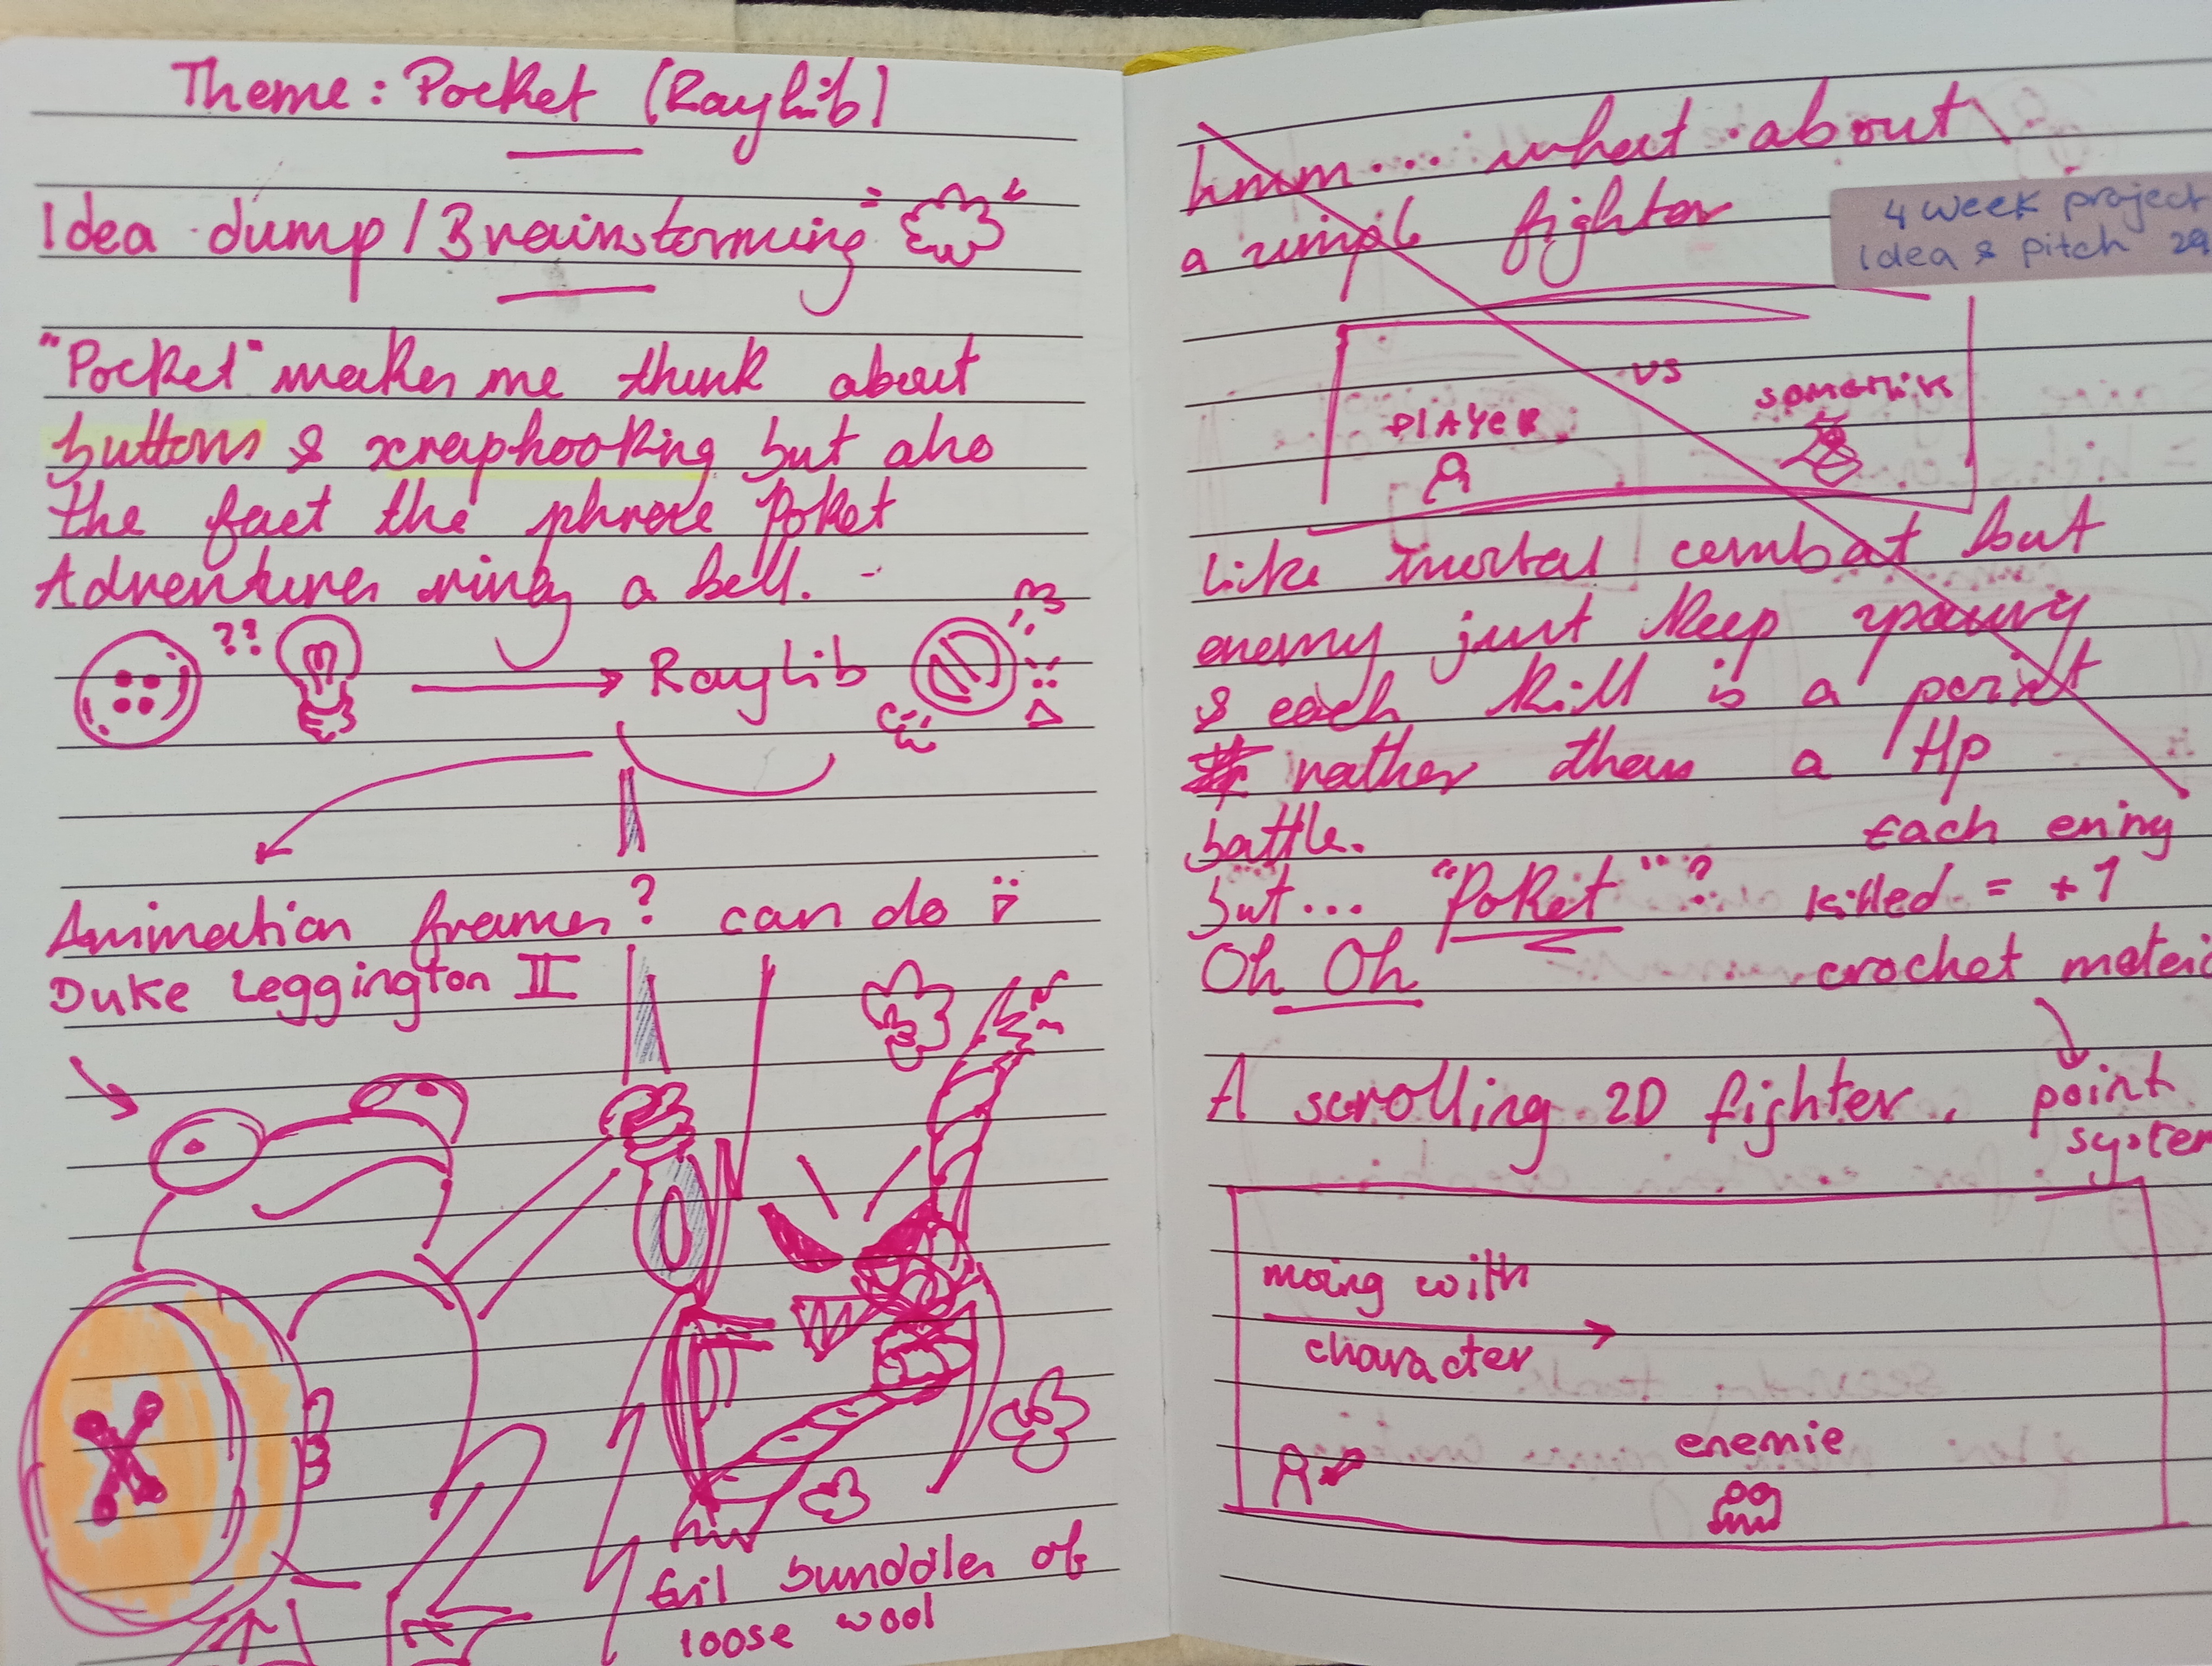 Theme: Pocket (Raylib)
Idea dump / Brainstorming
"Pocket" makes me think about
buttons & scrapbooking but also
the fact the phrase Poket
Adventures rings a bell.
?? Raylib
Animation frames? can do
Duke Leggington II
Evil bunddles of
loose wool
hmm... what about
a simple fighter
4 week project
Idea & pitch 29
VS
PLAYER
Like mortal combat but
enemy just keep
& each kill is a point
rather than a Hp
battle.
Each enimy
but... "Poket"?
killed = +1
Oh Oh
crochet
A scrolling 2D fighter.
point
system
moing with
character
enemie